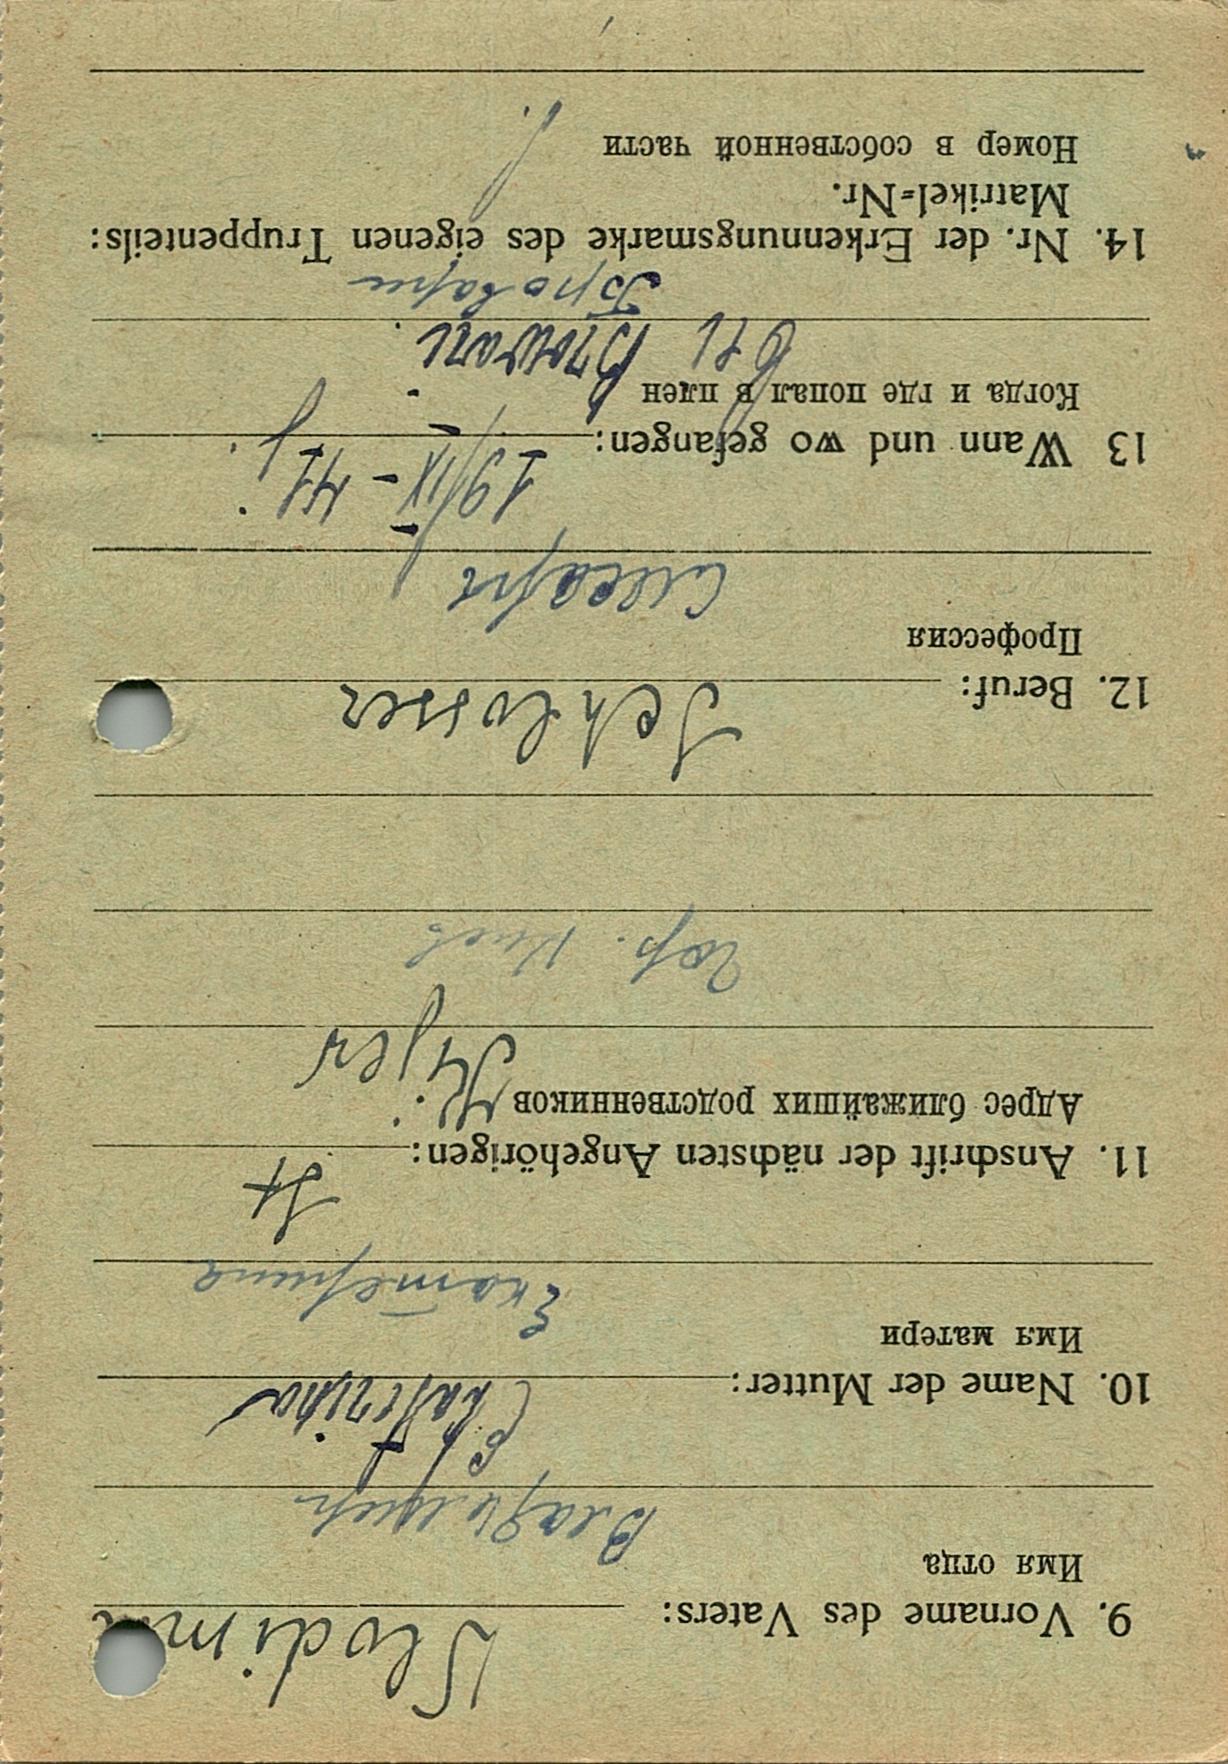 9. Vorname des Vaters: Wlodimir
Имя отца
Владимир
10. Name der Mutter: Ekaterina
Имя матери
Екатерина
11. Anschrift der nächsten Angehörigen: St
Адрес ближайших родственников
Kijew
гор. Киев
12. Beruf: Schlosser
Профессия
Слесарь
13 Wann und wo gefangen: 19/IX-41
Когда и где попал в плен
bei Browari
Бровари
14. Nr. der Erkennungsmarke des eigenen Truppenteils:
Matrikel=Nr.
Номер в собственной части